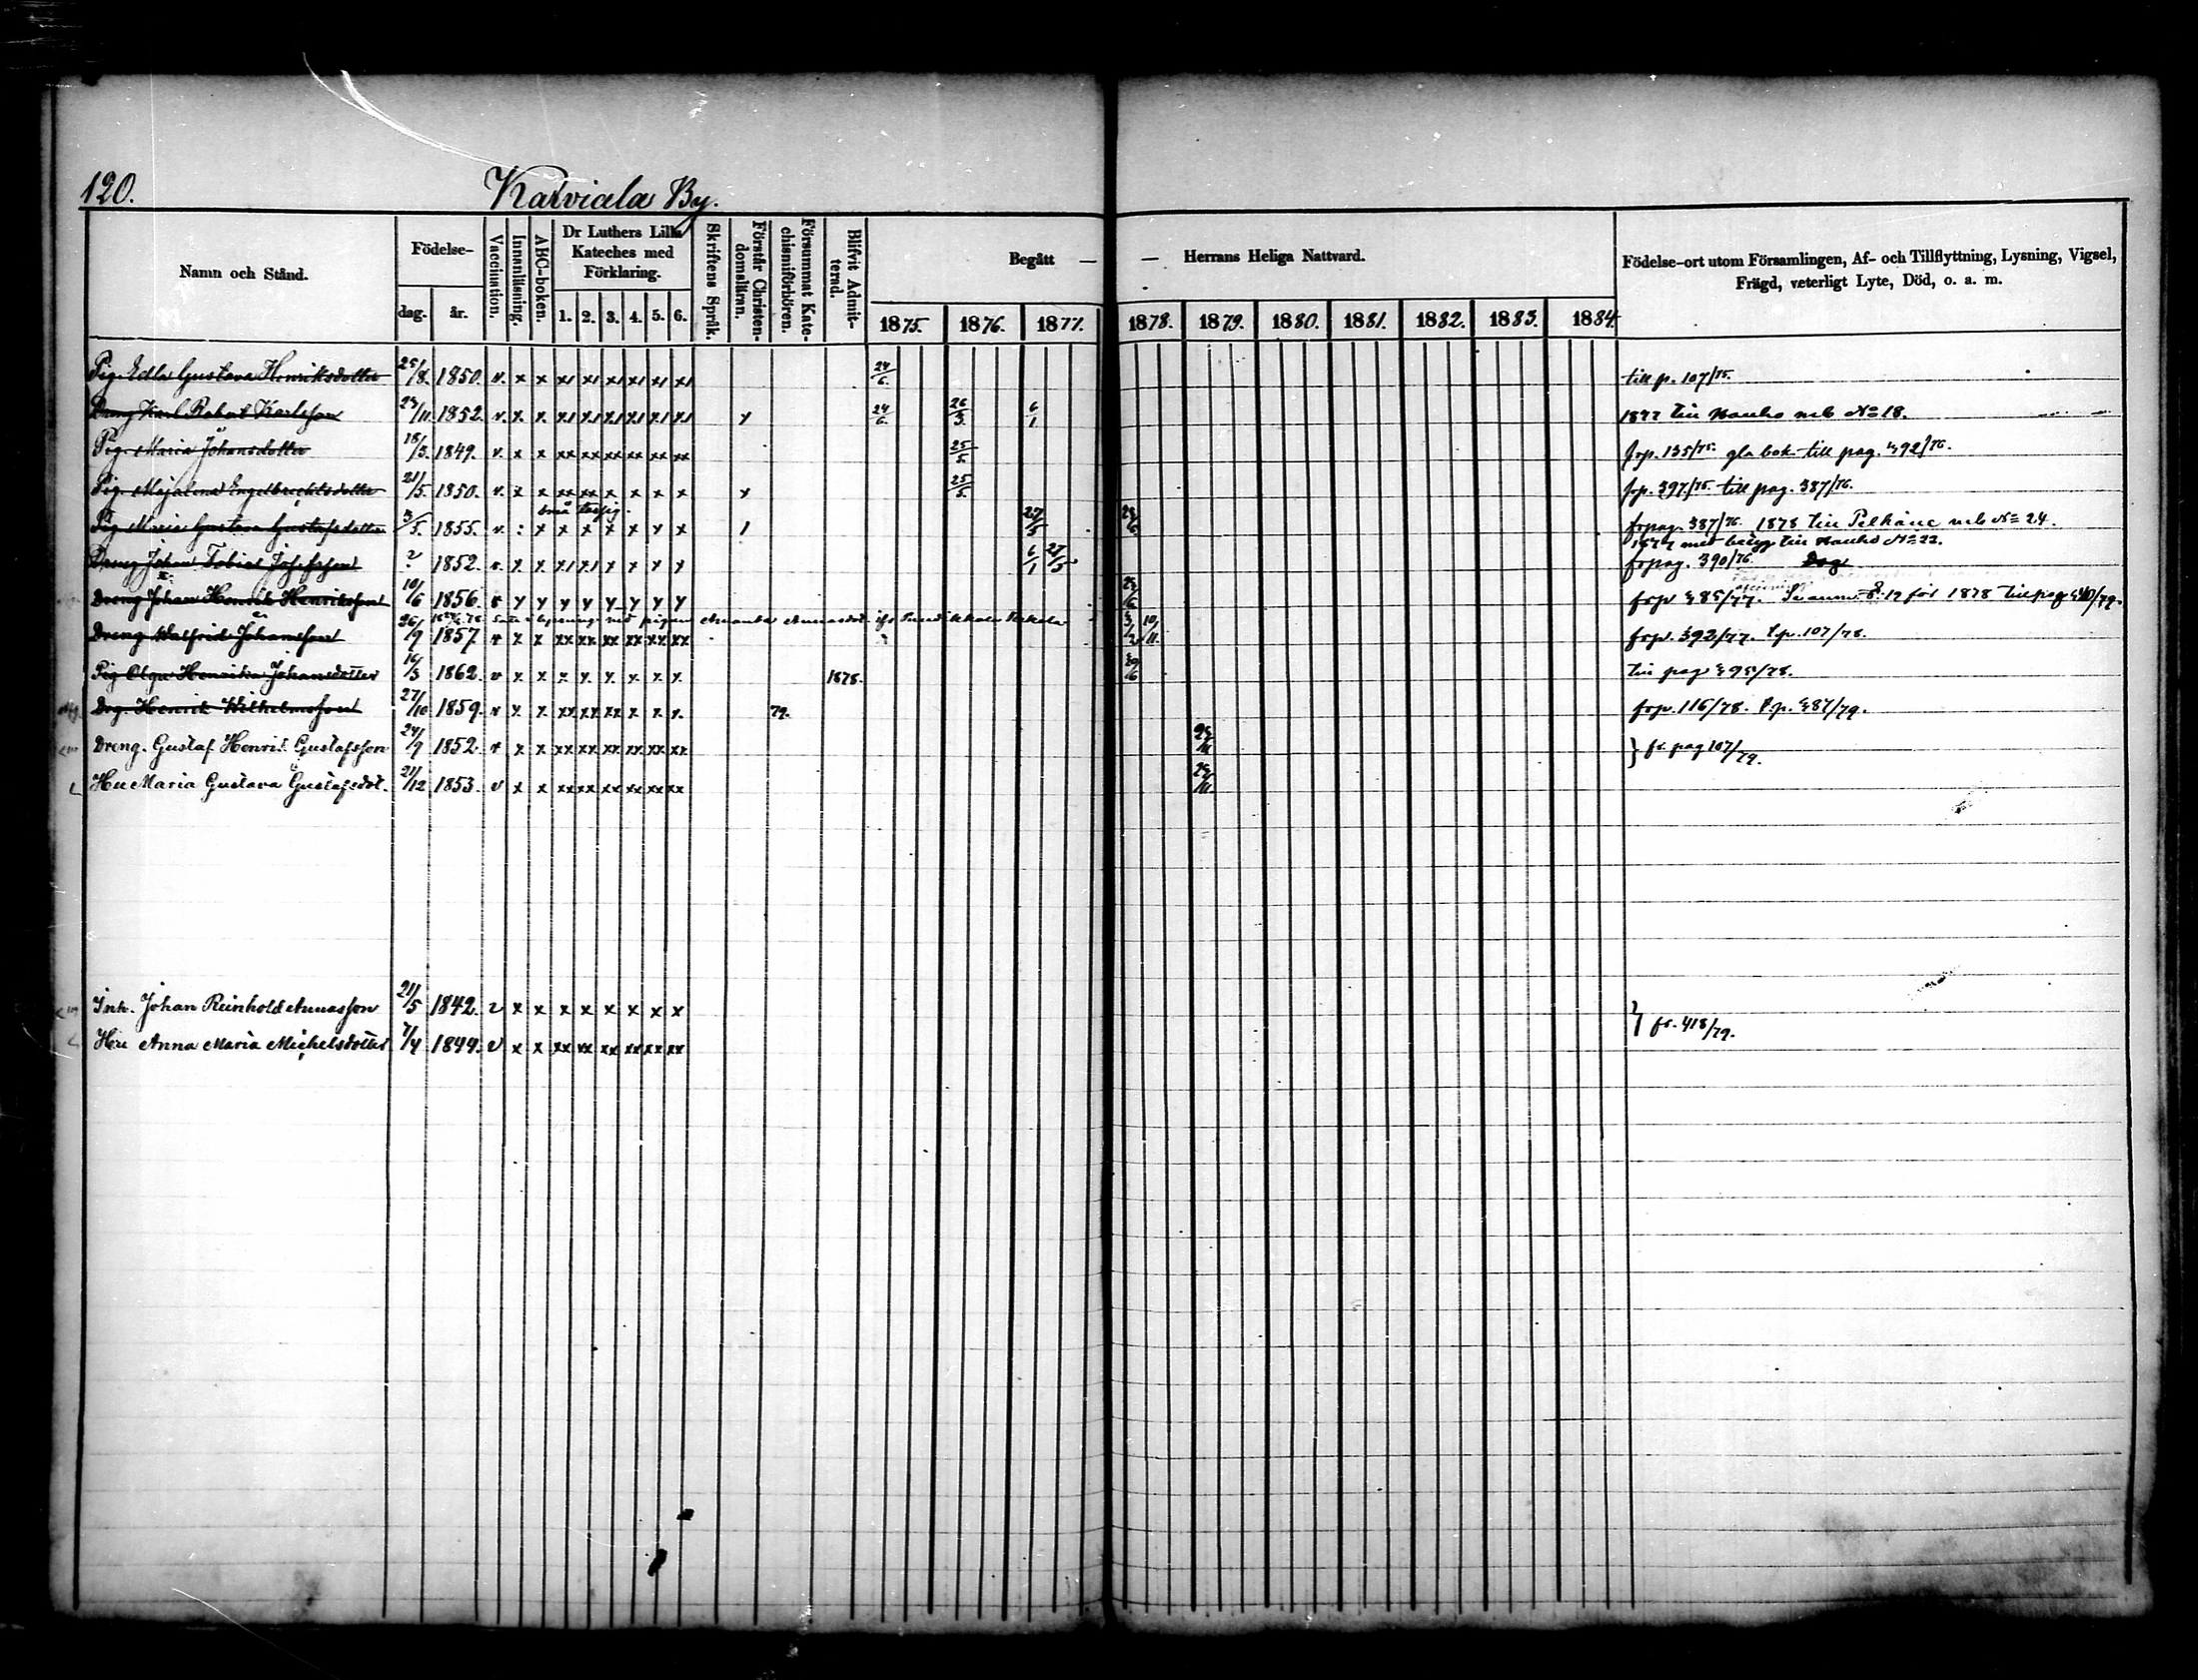 120.
Karviala By.
Namn och Stånd.
Födelse-
dag. år.
Vaccination.
Innanläsning.
ABC-boken.
Dr Luthers Lilla Kateches med Förklaring.
1. 2. 3. 4. 5. 6.
Skriftens Språk.
Förstår Christendomsläran.
Försummat Katechismiförhören.
Blifvit Admitterad.
Begått — — Herrans Heliga Nattvard.
1875. 1876. 1877. 1878. 1879. 1880. 1881. 1882. 1883. 1884.
Födelse-ort utom Församlingen, Af- och Tillflyttning, Lysning, Vigsel,
Frägd, veterligt Lyte, Död, o. a. m.
Pig. Edla Gustava Henriksdotter 25/8. 1850. v. x x x/ x/ x/ x/ x/ x/ 24/6. till p. 107/75.
Dreng Karl Robert Karlsson 1852. v. x. x x/ x/ x/ x/ x/ x/ y 24/6. 26/3. 6/1 1877 till Hauho mb No 18.
Pig. Maria Johansdotter 18/3. 1849. v. x x xx xx xx xx xx xx 25/5. frp. 135/75. gla bok. till pag. 492/76.
Pig. Majalena Engelbrechtsdotter 21/5. 1850. v. x x xx xx x x x x y 25/5. frp. 397/75 till pag. 387/76.
Pig Maria Gustava Gustafsdotter 3/5. 1855. v. : x x x x x y x / 27/5 frpag. 387/76. 1878 till Pelkäne mb No 24.
1877 med betyg till Hauho No 22.
Dreng Johan Tobias Josefsson ? 1852. v. x x x/ x/ x x x y 6/1 27/5 frpag. 390/76.
Dreng Johan Henrik Henriksson 10/6 1856. v y y y y y y y y frp 485/77. Se anm. S. 12 för 1878 till pag 440/79.
pigan Amanda Annasdot.
Dreng Walfrid Johansson 26/9 1857. v x x xx xx xx xx xx xx frp. 392/77. T.p. 107/78.
Pig Olga Henrika Johansdotter 16/3 1862. v x. x x y. y. x. x. x. 1878. till pag 495/78.
Drg. Henrik Wilhelmsson 27/10 1859. v x x xx xx xx x x. x. 79. frp. 116/78. T.p. 487/79.
Dreng. Gustaf Henrik Gustafsson 24/9 1852. v x x xx xx xx xx xx xx } fr. pag 107/79.
Hu Maria Gustava Gustafsdot. 21/12 1853. v x x xx xx xx xx xx xx
Inh. Johan Reinhold Annasson 21/5 1842. v x x x x x x x x } fr. 418/79.
Hu Anna Maria Michelsdotter 7/4 1849. v x x xx xx xx xx xx xx